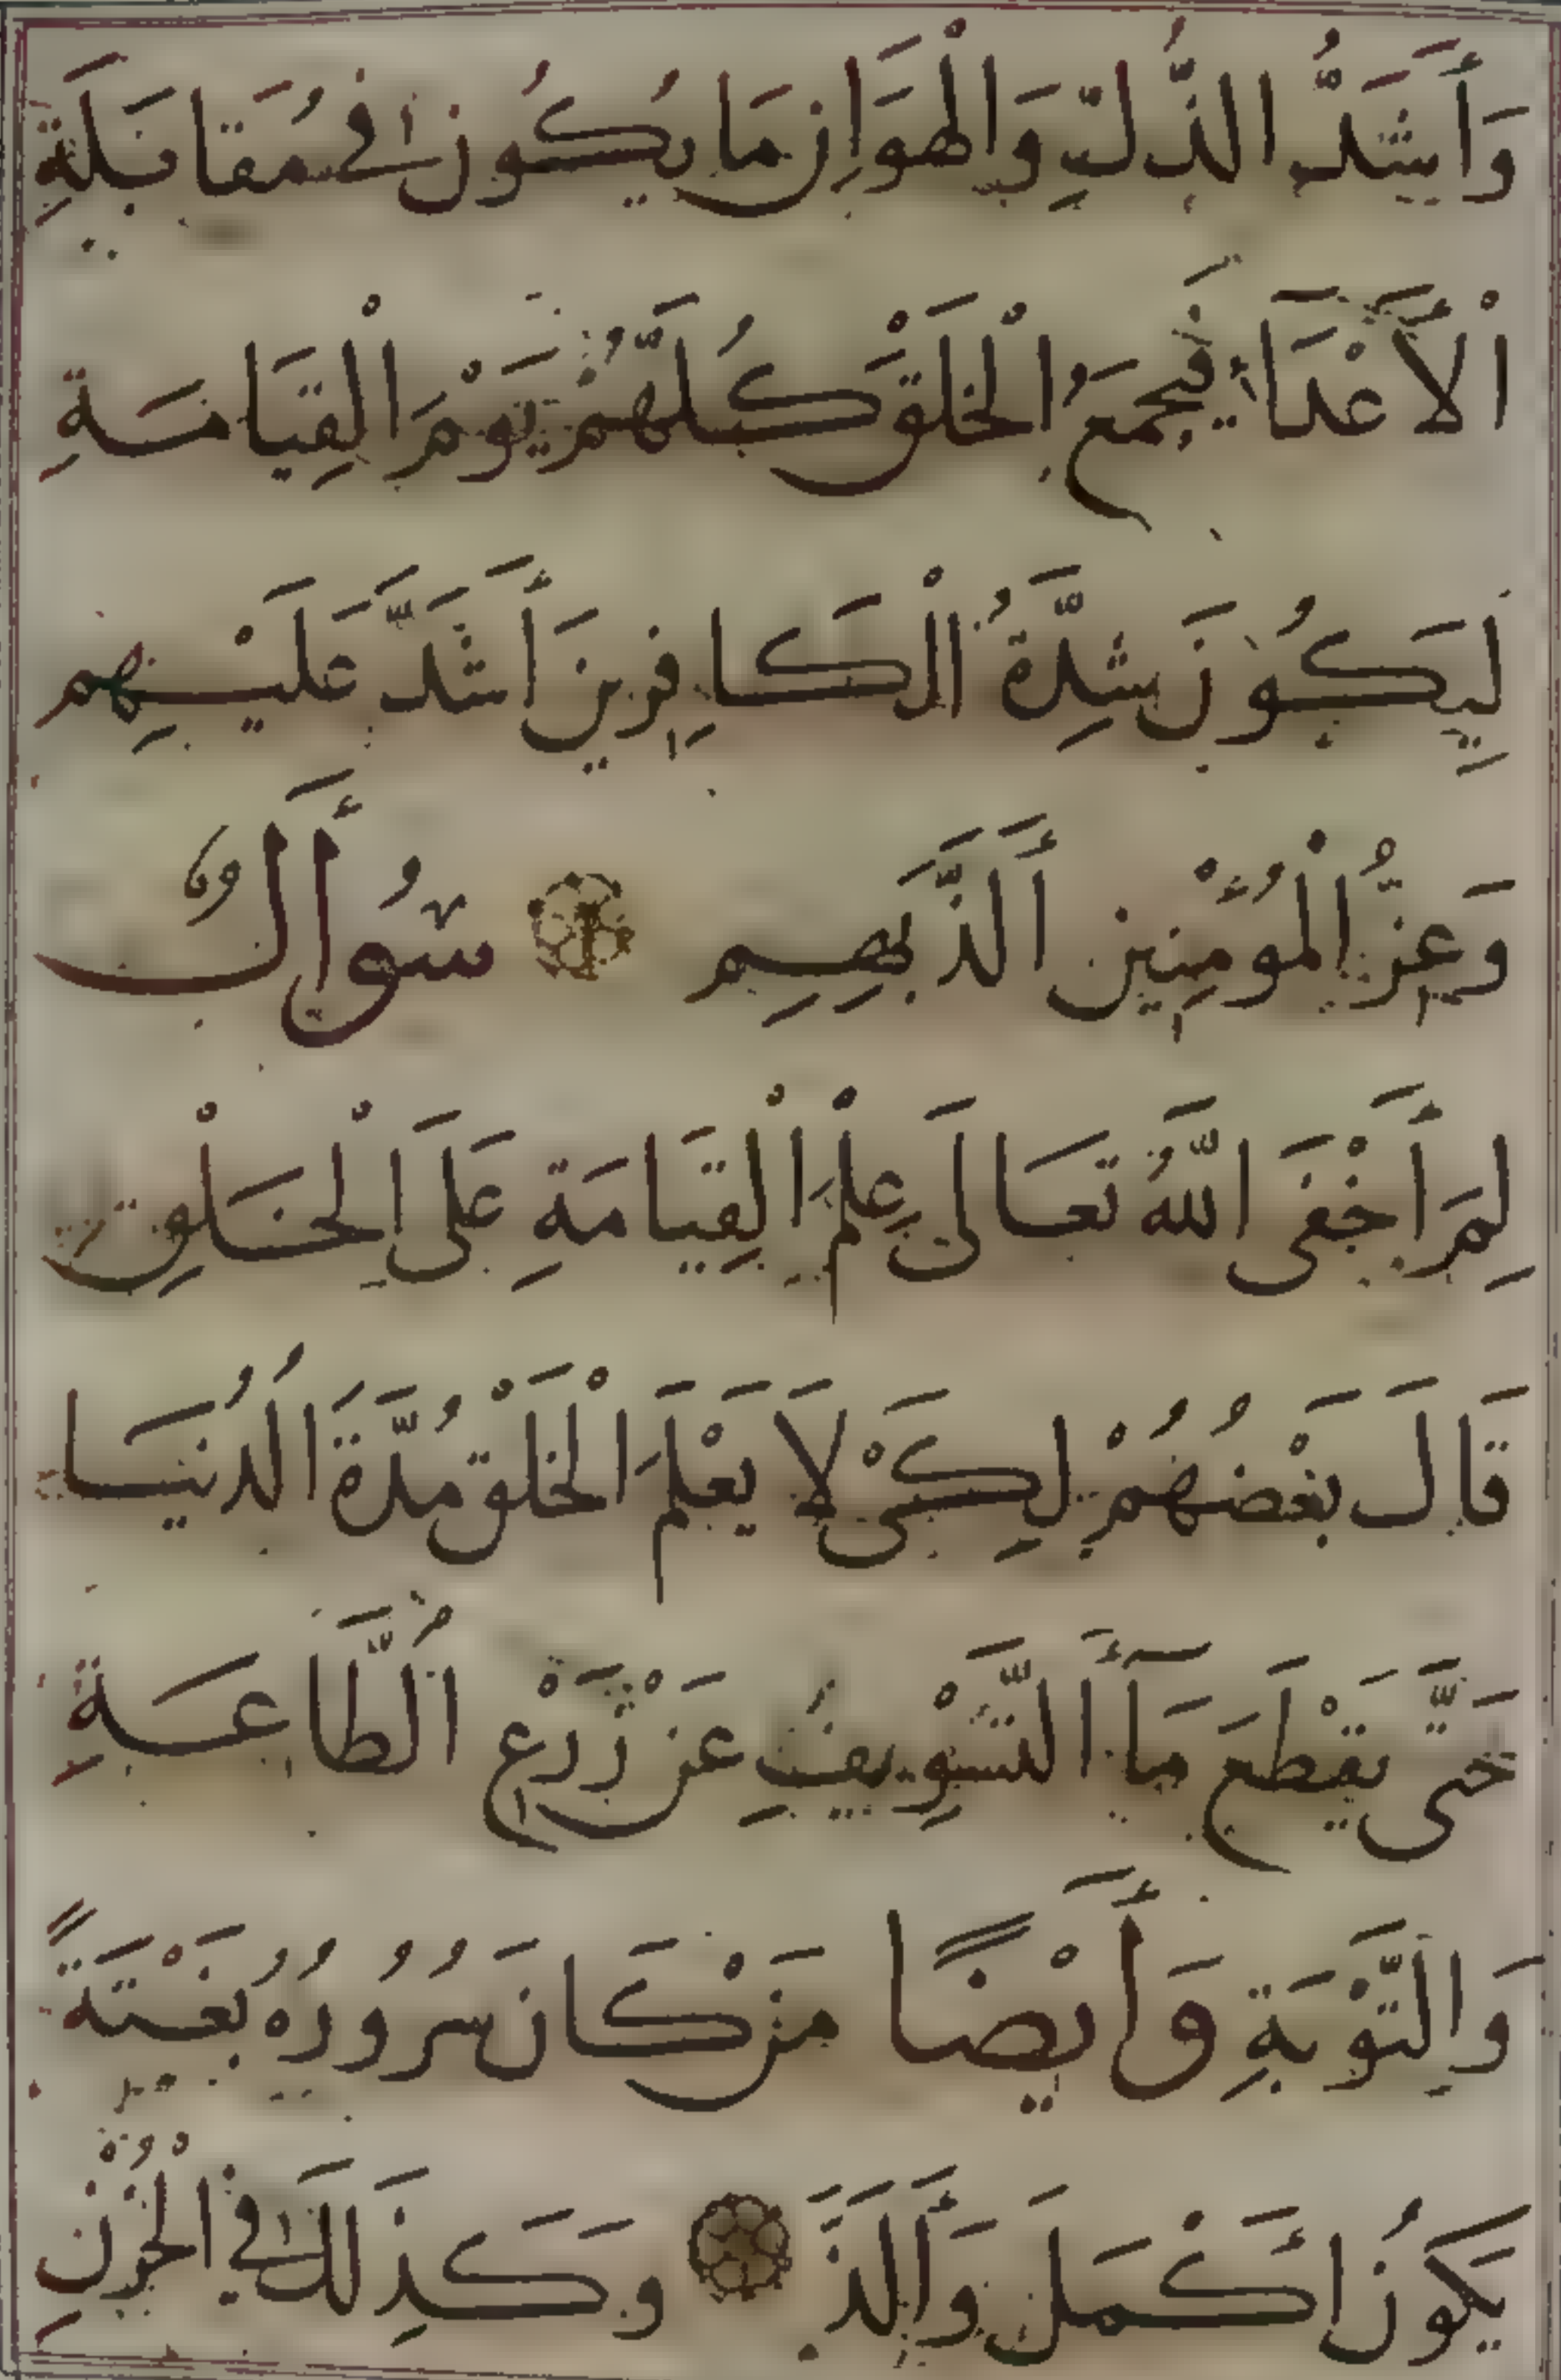 وَأَشَدُّ الذُّلِّ وَالْهَوَانِ مَا يَكُونُ فِي مُقَابَلَةِ
الْأَعْدَاءِ فَيَجْمَعُ الْخَلْقَ كُلَّهُمْ يَوْمَ الْقِيَامَةِ
لِيَكُونَ شِدَّةُ الْكَافِرِينَ أَشَدَّ عَلَيْهِم
وَعِزُّ الْمُؤْمِنِينَ أَلَذَّ بِهِم سُؤَالٌ
لِمَ أَخْفَى اللَّهُ تَعَالَى عِلْمَ الْقِيَامَةِ عَلَى الْخَلْقِ
قَالَ بَعْضُهُمْ لِكَيْ لَا يَعْلَمَ الْخَلْقُ مُدَّةَ الدُّنْيَا
حَتَّى يَقْطَعَ مَاءَ التَّسْوِيفِ عَنْ زَرْعِ الطَّاعَةِ
وَالتَّوْبَةِ وَأَيْضًا مَنْ كَانَ سُرُورُهُ بَغْتَةً
يَكُونُ أَكْمَلَ وَأَلَذَّ وَكَذَلِكَ فِي الْحُزْنِ